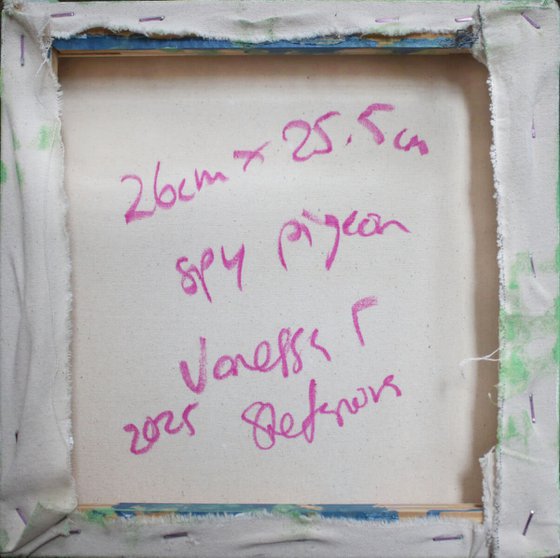 26cm x 25.5cm
spy pigeon
Vanessa
2025 Stefanova